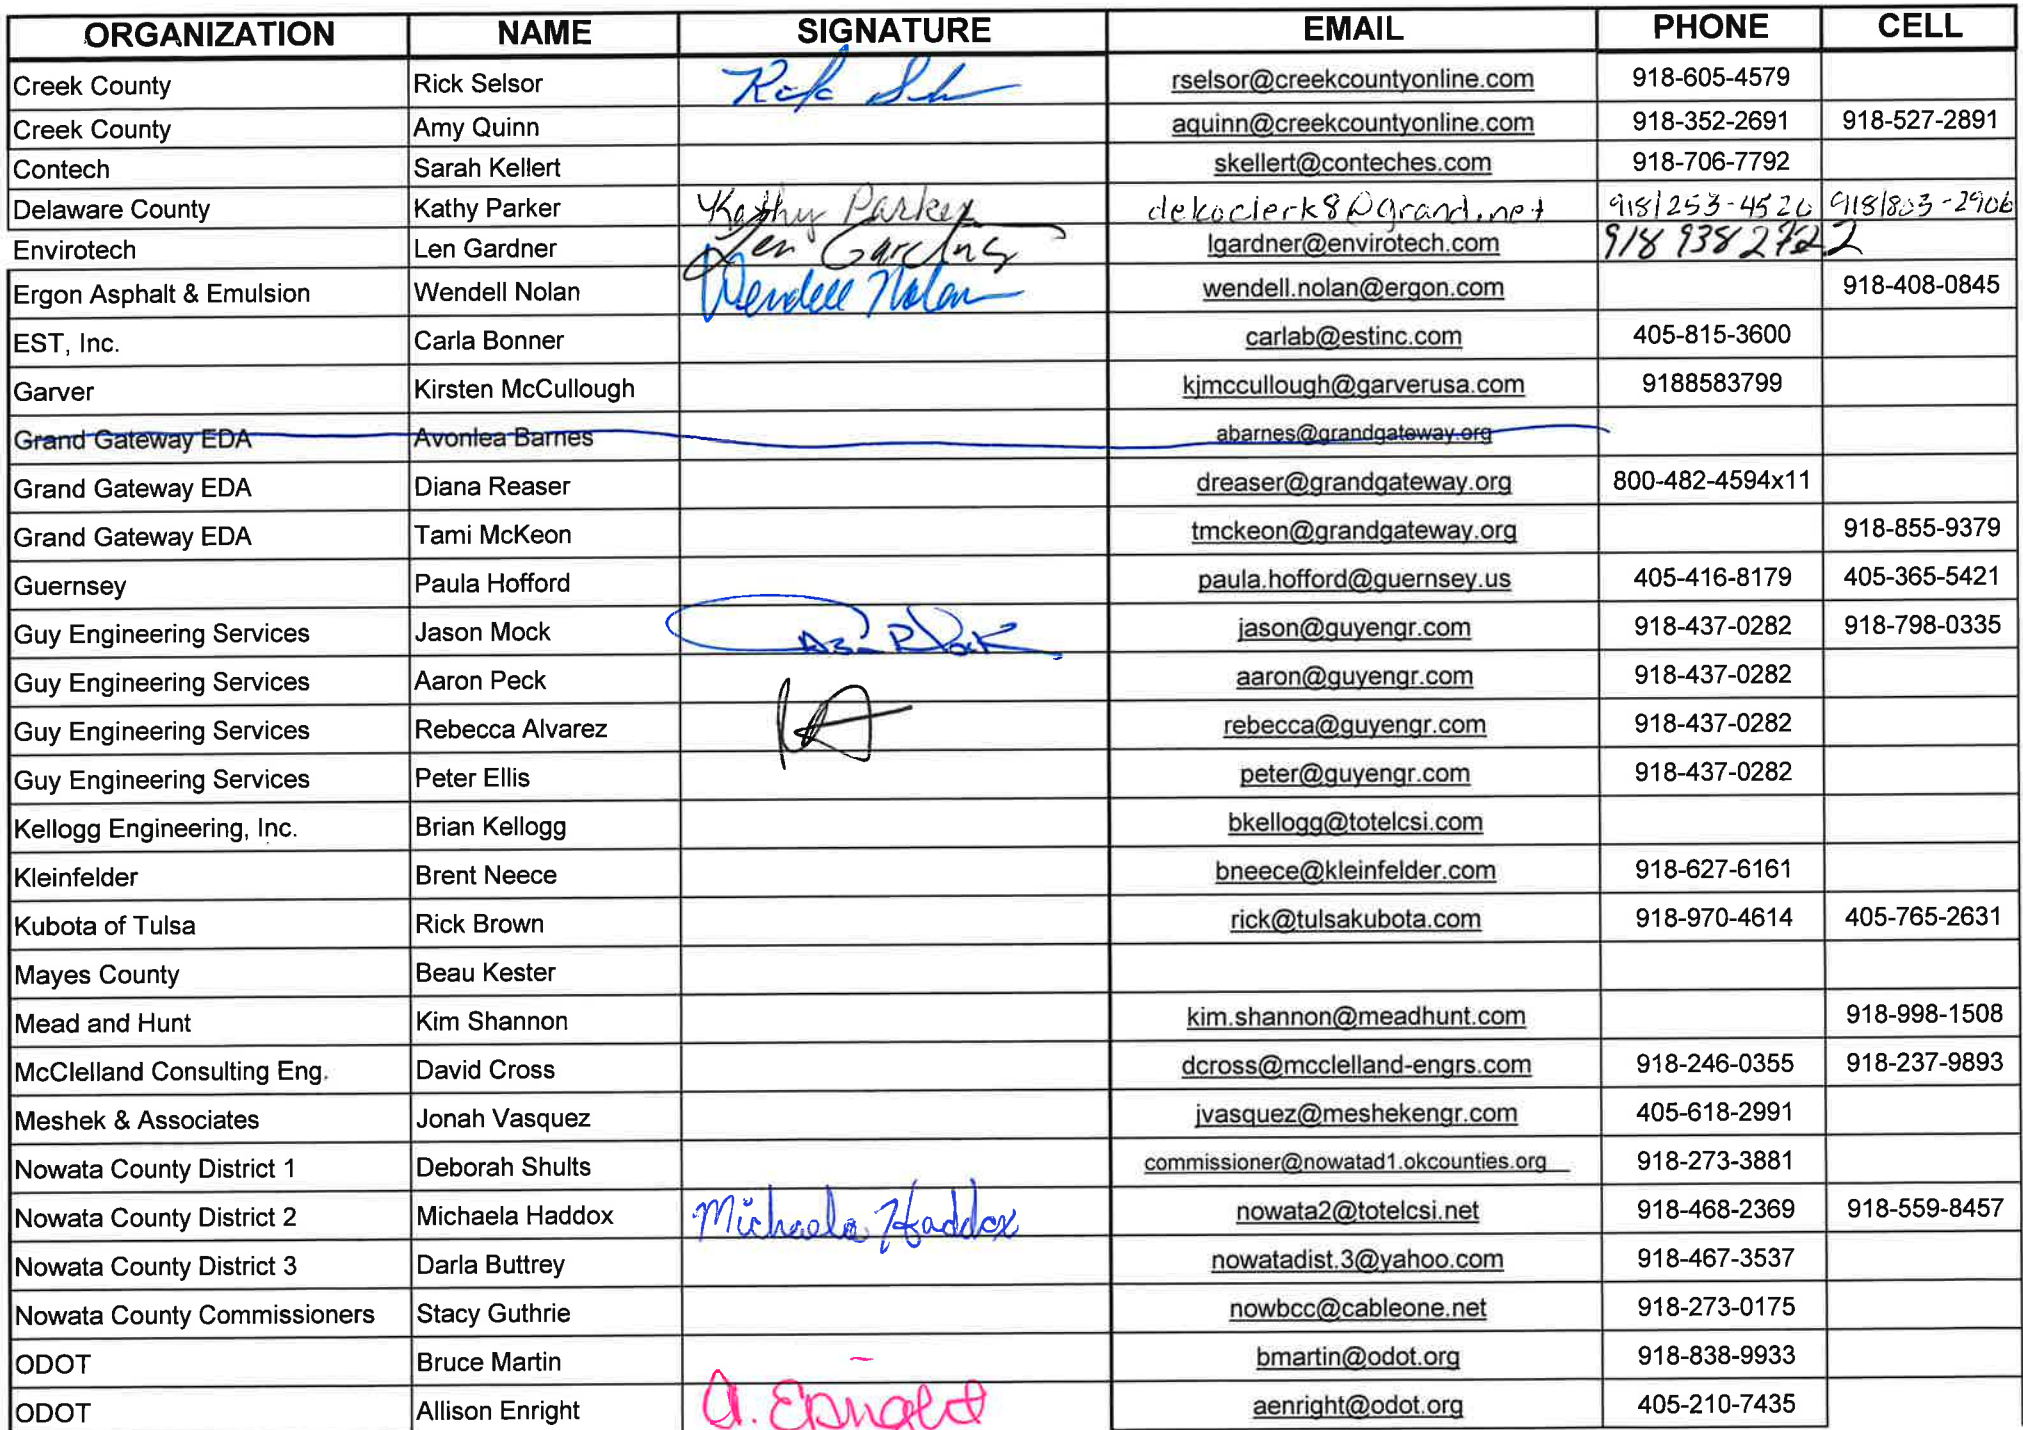 ORGANIZATION NAME SIGNATURE EMAIL PHONE CELL
Creek County Rick Selsor rselsor@creekcountyonline.com 918-605-4579
Creek County Amy Quinn aquinn@creekcountyonline.com 918-352-2691 918-527-2891
Contech Sarah Kellert skellert@conteches.com 918-706-7792
Delaware County Kathy Parker Kathy Parker dekoclerk8@grand.net 918/253-4520 918/803-2906
Envirotech Len Gardner Len Gardner lgardner@envirotech.com 918 938 2722
Ergon Asphalt & Emulsion Wendell Nolan Wendell Nolan wendell.nolan@ergon.com 918-408-0845
EST, Inc. Carla Bonner carlab@estinc.com 405-815-3600
Garver Kirsten McCullough kjmccullough@garverusa.com 9188583799
Grand Gateway EDA Avonlea Barnes abarnes@grandgateway.org
Grand Gateway EDA Diana Reaser dreaser@grandgateway.org 800-482-4594x11
Grand Gateway EDA Tami McKeon tmckeon@grandgateway.org 918-855-9379
Guernsey Paula Hofford paula.hofford@guernsey.us 405-416-8179 405-365-5421
Guy Engineering Services Jason Mock jason@guyengr.com 918-437-0282 918-798-0335
Guy Engineering Services Aaron Peck aaron@guyengr.com 918-437-0282
Guy Engineering Services Rebecca Alvarez rebecca@guyengr.com 918-437-0282
Guy Engineering Services Peter Ellis peter@guyengr.com 918-437-0282
Kellogg Engineering, Inc. Brian Kellogg bkellogg@totelcsi.com
Kleinfelder Brent Neece bneece@kleinfelder.com 918-627-6161
Kubota of Tulsa Rick Brown rick@tulsakubota.com 918-970-4614 405-765-2631
Mayes County Beau Kester
Mead and Hunt Kim Shannon kim.shannon@meadhunt.com 918-998-1508
McClelland Consulting Eng. David Cross dcross@mcclelland-engrs.com 918-246-0355 918-237-9893
Meshek & Associates Jonah Vasquez jvasquez@meshekengr.com 405-618-2991
Nowata County District 1 Deborah Shults commissioner@nowatad1.okcounties.org 918-273-3881
Nowata County District 2 Michaela Haddox Michaela Haddox nowata2@totelcsi.net 918-468-2369 918-559-8457
Nowata County District 3 Darla Buttrey nowatadist.3@yahoo.com 918-467-3537
Nowata County Commissioners Stacy Guthrie nowbcc@cableone.net 918-273-0175
ODOT Bruce Martin bmartin@odot.org 918-838-9933
ODOT Allison Enright A. Enright aenright@odot.org 405-210-7435